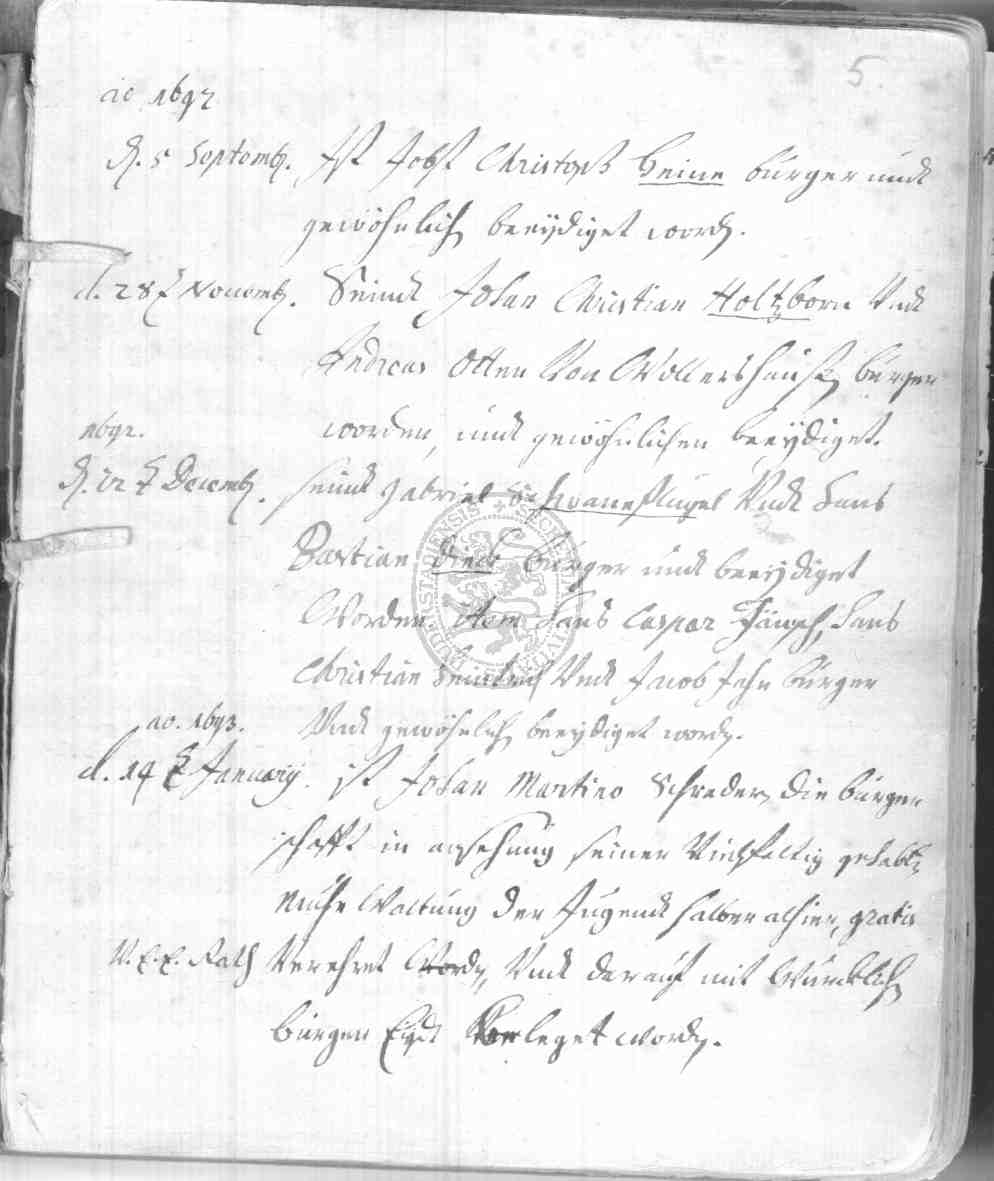 5
ao 1692
d. 5 Septemb. Ist Jobst Christoph Heine burger undt
gewöhnlich beeydiget word.
d. 28t Novemb. Seindt Johan Christian Holtzborn Undt
Andreas Otten Von Wollershausen burger
worden, undt gewöhnlichen beeydiget.
1692.
d. 12t Decemb. seindt Gabriel Schwaneflügel Undt Hans
Bastian Dieck burger undt beeydiget
Worden. Item Hans Caspar Hans
Christian Undt Jacob Jehn burger
Undt gewöhnlich beeydiget word.
ao. 1693.
d. 14t January. ist Johan Martino Schreder, die burger
schafft in ansehung seiner Vielfaltig gehabt
Muhe Waltung der Jugendt halber alhier, gratis
V. E. E. Rath Verehret Word, Undt darauf mit Würcklich
burger Eydt beleget word.